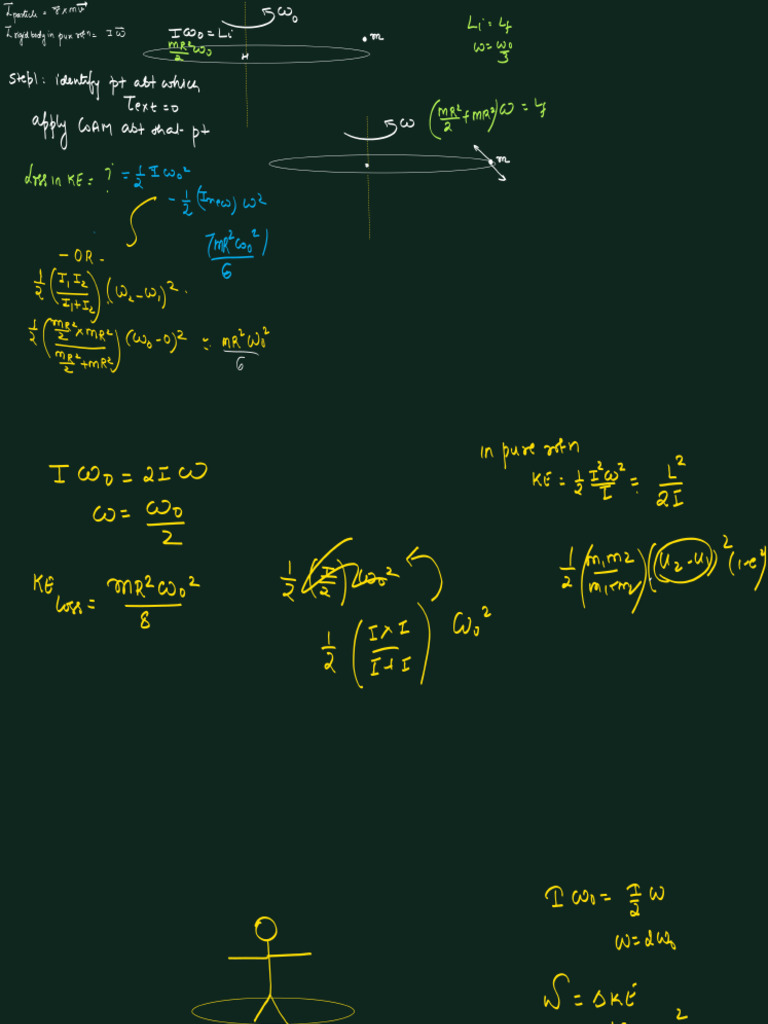 L⃗ particle = r⃗ × mv⃗
L⃗ rigid body in pure rotn = Iω⃗
ω₀
Iω₀ = Li
mR²/2 ω₀
m
Li = Lf
ω = ω₀/3
Step1: identify pt abt which
τext = 0
apply COAM abt that pt
ω
(mR²/2 + mR²) ω = Lf
m
Loss in KE = ? = 1/2 I ω₀²
- 1/2 (Inew) ω²
7mR²ω₀²/6
- OR -
1/2 (I₁I₂/(I₁+I₂)) (ω₂-ω₁)²
1/2 ((mR²/2 × mR²)/(mR²/2 + mR²)) (ω₀-0)² = mR²ω₀²/6
Iω₀ = 2Iω
ω = ω₀/2
KE loss = mR²ω₀²/8
1/2 (I/2) ω₀²
1/2 (I×I/(I+I)) ω₀²
in pure rotn
KE = 1/2 I²ω²/I = L²/2I
1/2 (m₁m₂/(m₁+m₂)) (u₂-u₁)² (1-e²)
Iω₀ = I/2 ω
ω = 2ω₀
W = ΔKE